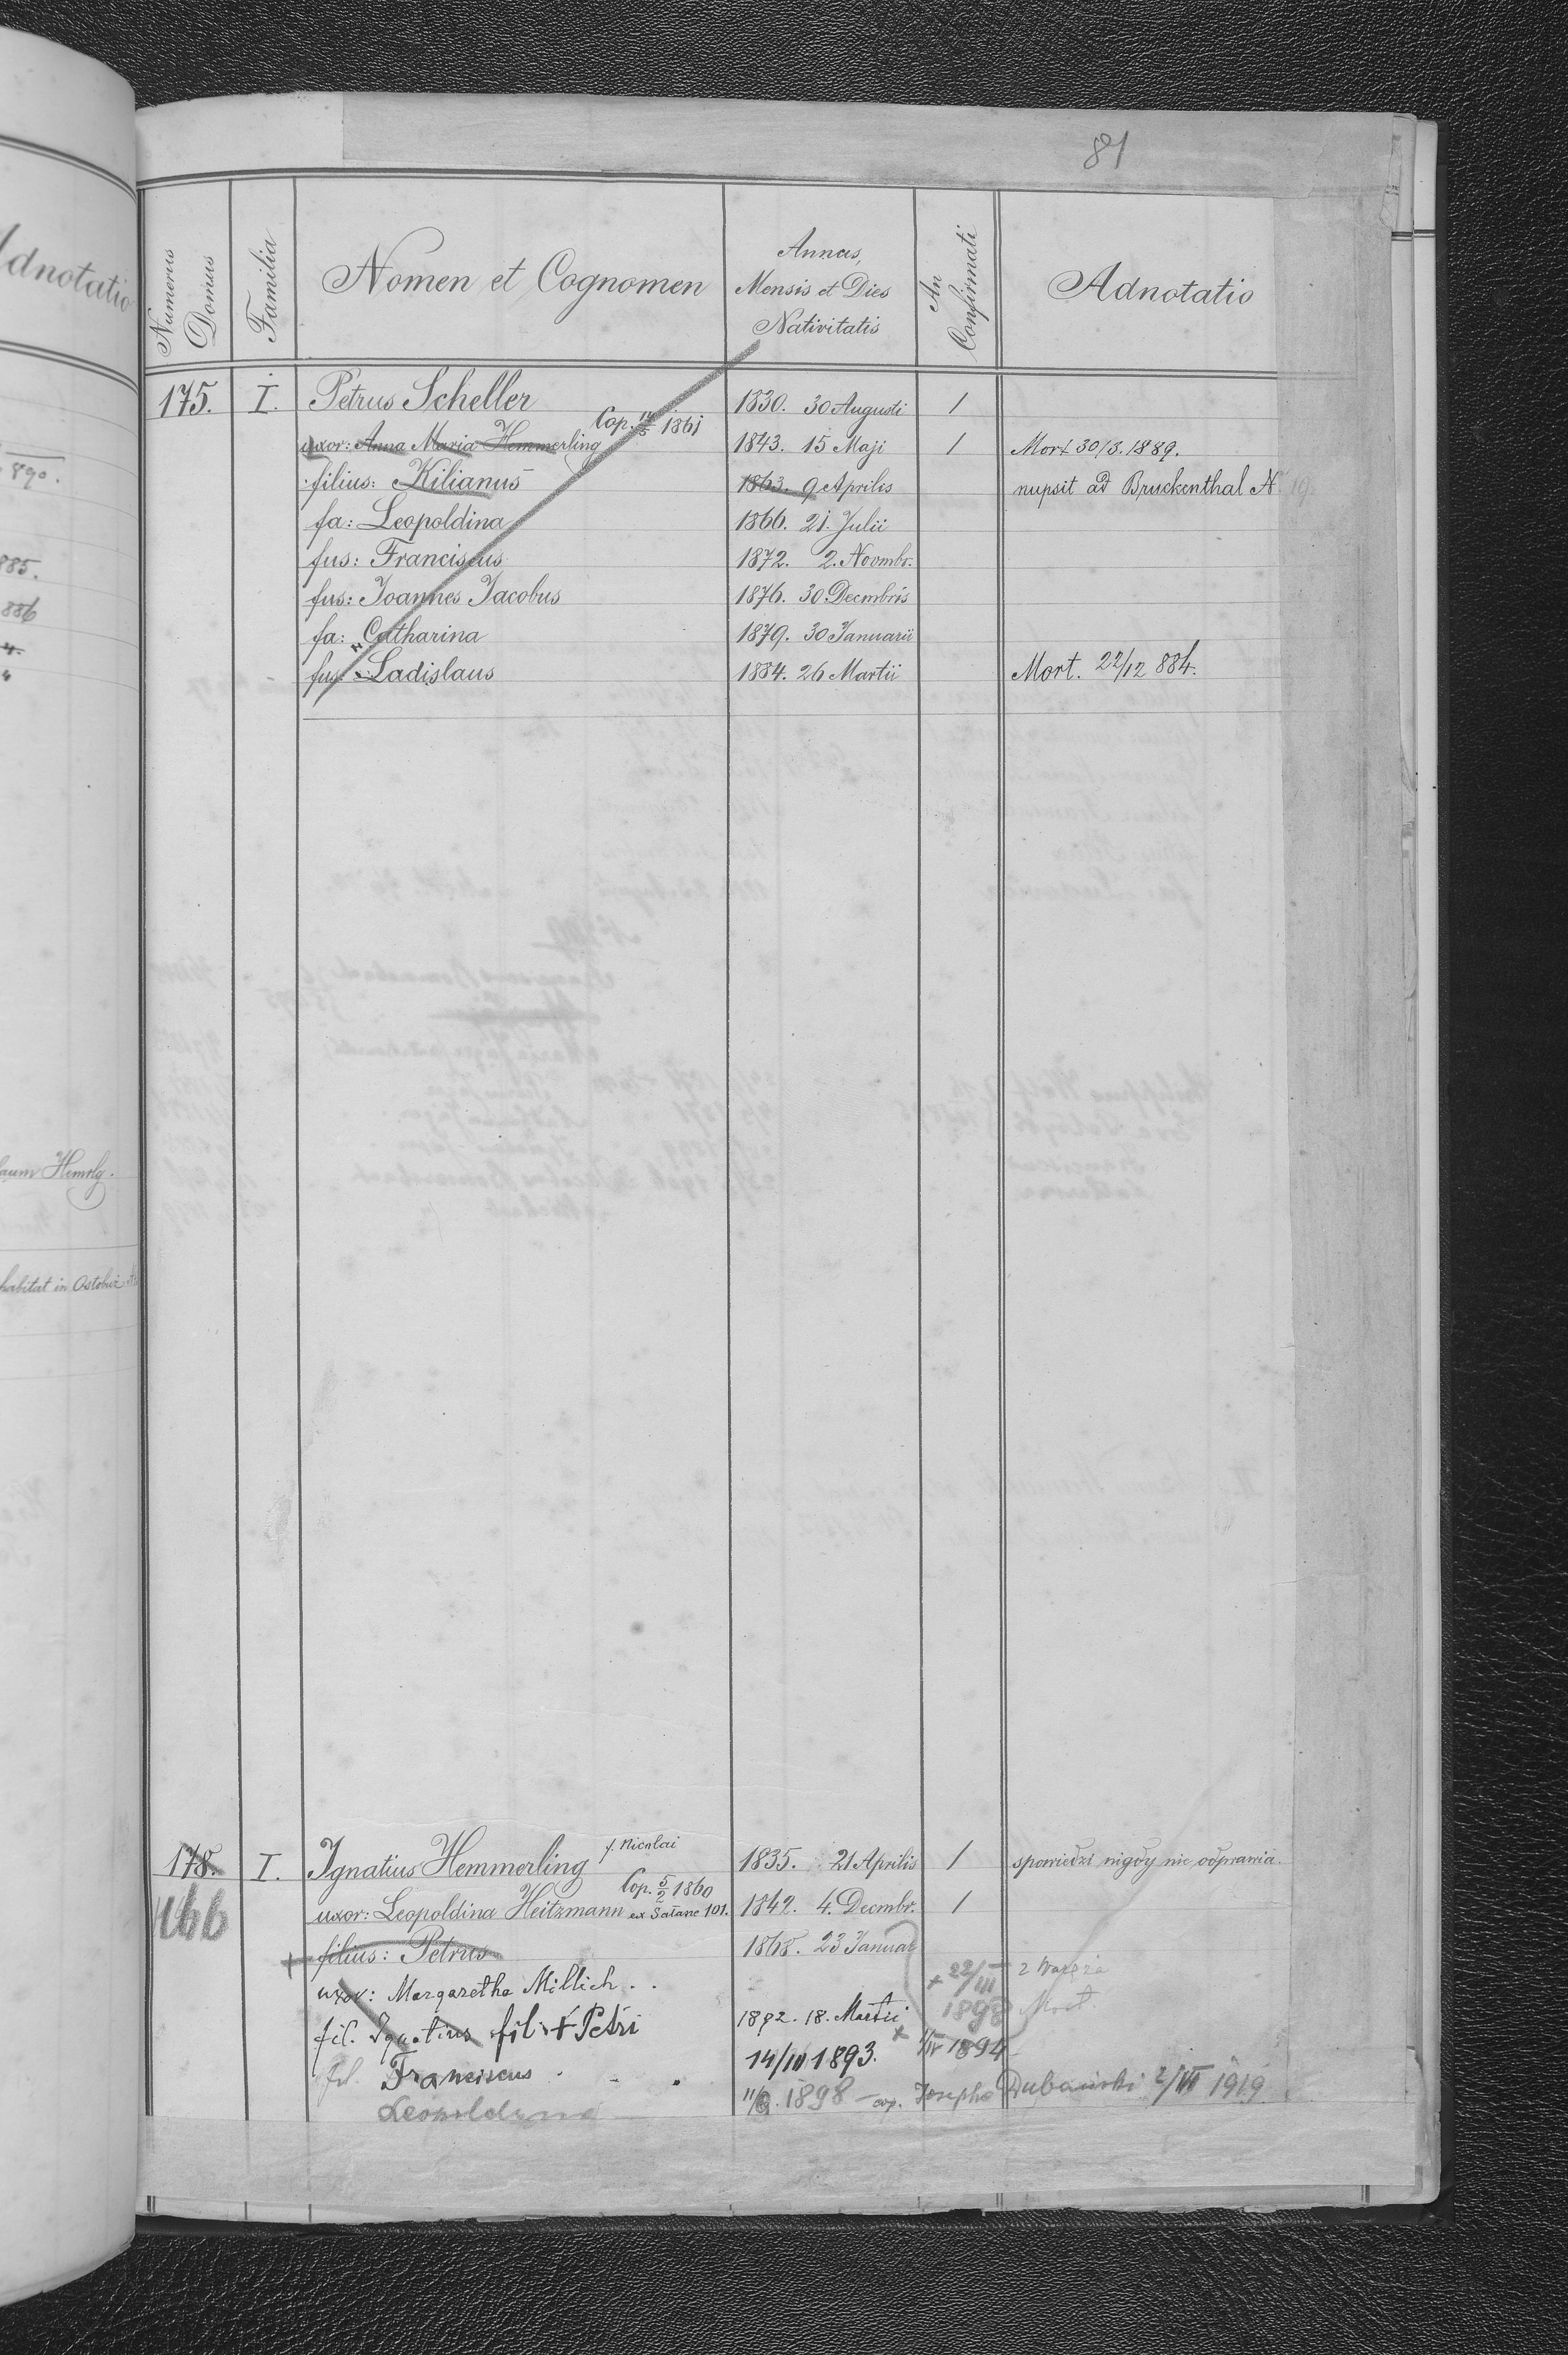 Adnotatio
890.
885.
886
Hemrlg.
habitat in
81
Numerus Domus
Familia
Nomen et Cognomen
Annus, Mensis et Dies Nativitatis
An Confirmati
Adnotatio
175. I. Petrus Scheller 1830. 30 Augusti 1
Cop. 14/5 1861
uxor: Anna Maria Hemmerling 1843. 15 Maji 1 Mort 30/3. 1889.
filius: Kilianus 1863. 9 Aprilis nupsit ad Bruckenthal N. 19.
fa: Leopoldina 1866. 21. Julii
fus: Franciscus 1872. 2. Novmbr.
fus: Joannes Jacobus 1876. 30 Decmbris
fa: Catharina 1879. 30 Januarii
fus: Ladislaus 1884. 26 Martii Mort. 22/12 884.
178. I. Ignatius Hemmerling f. Nicolai 1835. 21 Aprilis 1 spowiedzi nigdy nie odprawia.
Cop. 5/2 1860
166 uxor: Leopoldina Heitzmann ex 101. 1842. 4. Decmbr. 1
+ filius: Petrus 1868. 23 Januar
uxor: Margaretha Millich + 22/III 1898 z Waręża
fil. Ignatius fil + Petri 1892. 18. Martii Mort.
fil. Franciscus 14/III 1893. + 1894
Leopoldyna 1898 - cop. Josepho 2/VI 1919